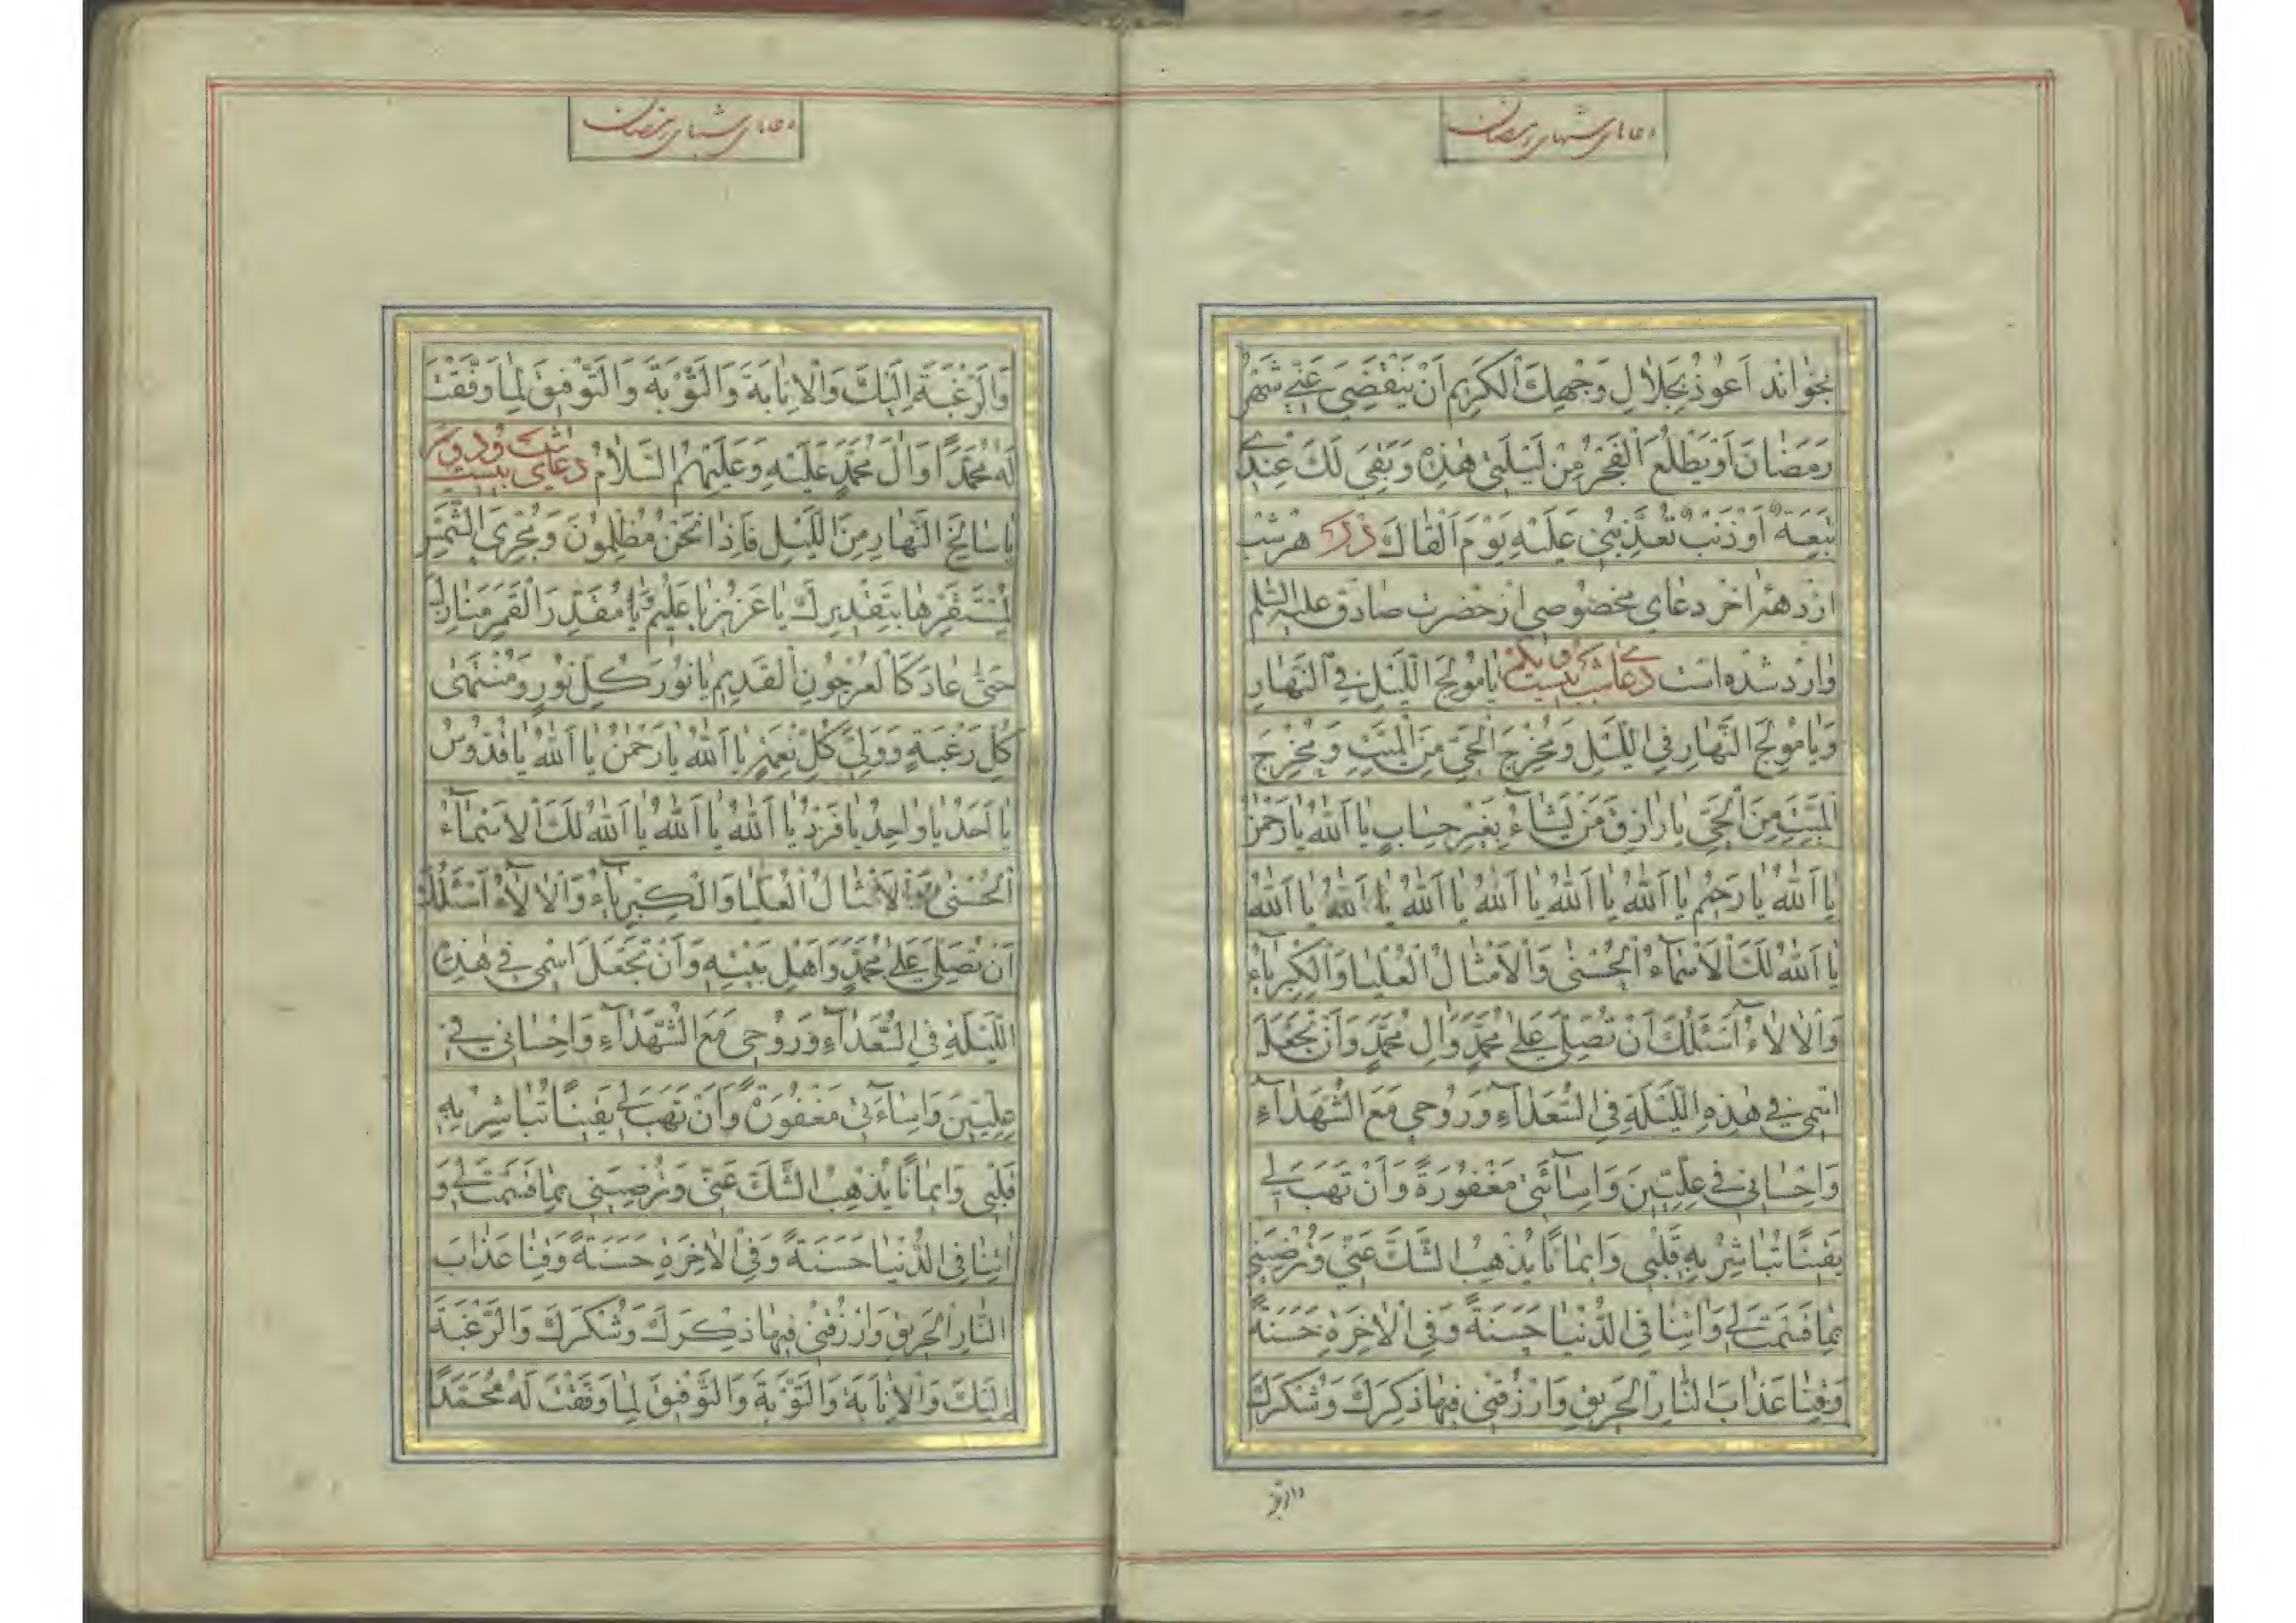 دعای شبهای رمضان
بخواند اَعُوذُ بِجَلالِ وَجْهِكَ الْكَرِيمِ اَنْ يَنْقَضِيَ عَنّي شَهْرُ
رَمَضانَ اَوْ يَطْلُعَ الْفَجْرُ مِنْ لَيْلَتي هٰذِهِ وَ بَقِيَ لَكَ عِنْدي
تَبِعَةٌ اَوْ ذَنْبٌ تُعَذِّبُني عَلَيْهِ يَوْمَ اَلْقاكَ در هر شب
از دههٔ اخر دعای مخصوصی از حضرت صادق علیه السلم
وارد شده است دعای شب بیست و یکم يا مُولِجَ اللَّيْلِ فِي النَّهارِ
وَيا مُولِجَ النَّهارِ فِي اللَّيْلِ وَمُخْرِجَ الْحَيِّ مِنَ الْمَيِّتِ وَمُخْرِجَ
الْمَيِّتِ مِنَ الْحَيِّ يا رازِقَ مَنْ يَشاءُ بِغَيْرِ حِسابٍ يا اَللهُ يا رَحْمٰنُ
يا اَللهُ يا رَحِيمُ يا اَللهُ يا اَللهُ يا اَللهُ يا اَللهُ يا اَللهُ يا اَللهُ
يا اَللهُ لَكَ الْاَسْماءُ الْحُسْنىٰ وَالْاَمْثالُ الْعُلْيا وَالْكِبْرِياءُ
وَالْالاءُ اَسْئَلُكَ اَنْ تُصَلِّيَ عَلىٰ مُحَمَّدٍ وَ الِ مُحَمَّدٍ وَ اَنْ تَجْعَلَ
اسْمي في هٰذِهِ اللَّيْلَةِ فِي السُّعَداءِ وَ رُوحي مَعَ الشُّهَداءِ
وَ اِحْساني في عِلِّيّينَ وَ اِسائَتي مَغْفُورَةً وَ اَنْ تَهَبَ لي
يَقينًا تُباشِرُ بِهِ قَلْبي وَ ايمانًا يُذْهِبُ الشَّكَّ عَنّي وَ تُرْضِيَني
بِما قَسَمْتَ لي وَ اتِنا فِي الدُّنْيا حَسَنَةً وَ فِي الْاخِرَةِ حَسَنَةً
وَقِنا عَذابَ النّارِ الْحَريقِ وَارْزُقْني فيها ذِكْرَكَ وَ شُكْرَكَ
دعای شبهای رمضان
وَالرَّغْبَةَ اِلَيْكَ وَالْاِنابَةَ وَالتَّوْبَةَ وَالتَّوْفيقَ لِما وَفَّقْتَ
لَهُ مُحَمَّدًا وَ الَ مُحَمَّدٍ عَلَيْهِ وَ عَلَيْهِمُ السَّلامُ دعای شب بیست و دوم
يا سالِخَ النَّهارِ مِنَ اللَّيْلِ فَاِذا نَحْنُ مُظْلِمُونَ وَ مُجْرِيَ الشَّمْسِ
لِمُسْتَقَرِّها بِتَقْديرِكَ يا عَزيزُ يا عَليمُ وَيا مُقَدِّرَ الْقَمَرِ مَنازِلَ
حَتّىٰ عادَ كَالْعُرْجُونِ الْقَديمِ يا نُورَ كُلِّ نُورٍ وَ مُنْتَهىٰ
كُلِّ رَغْبَةٍ وَ وَلِيَّ كُلِّ نِعْمَةٍ يا اَللهُ يا رَحْمٰنُ يا اَللهُ يا قُدُّوسُ
يا اَحَدُ يا واحِدُ يا فَرْدُ يا اَللهُ يا اَللهُ يا اَللهُ لَكَ الْاَسْماءُ
الْحُسْنىٰ وَ الْاَمْثالُ الْعُلْيا وَالْكِبْرِياءُ وَالْالاءُ اَسْئَلُكَ
اَنْ تُصَلِّيَ عَلىٰ مُحَمَّدٍ وَ اَهْلِ بَيْتِهِ وَ اَنْ تَجْعَلَ اسْمي في هٰذِهِ
اللَّيْلَةِ فِي السُّعَداءِ وَ رُوحي مَعَ الشُّهَداءِ وَ اِحْساني في
عِلِّيّينَ وَ اِساءَتي مَغْفُورَةً وَ اَنْ تَهَبَ لي يَقينًا تُباشِرُ بِهِ
قَلْبي وَ ايمانًا يُذْهِبُ الشَّكَّ عَنّي وَ تُرْضِيَني بِما قَسَمْتَ لي وَ
اتِنا فِي الدُّنْيا حَسَنَةً وَ فِي الْاخِرَةِ حَسَنَةً وَقِنا عَذابَ
النّارِ الْحَريقِ وَارْزُقْني فيها ذِكْرَكَ وَ شُكْرَكَ وَالرَّغْبَةَ
اِلَيْكَ وَالْاِنابَةَ وَالتَّوْبَةَ وَالتَّوْفيقَ لِما وَفَّقْتَ لَهُ مُحَمَّدًا